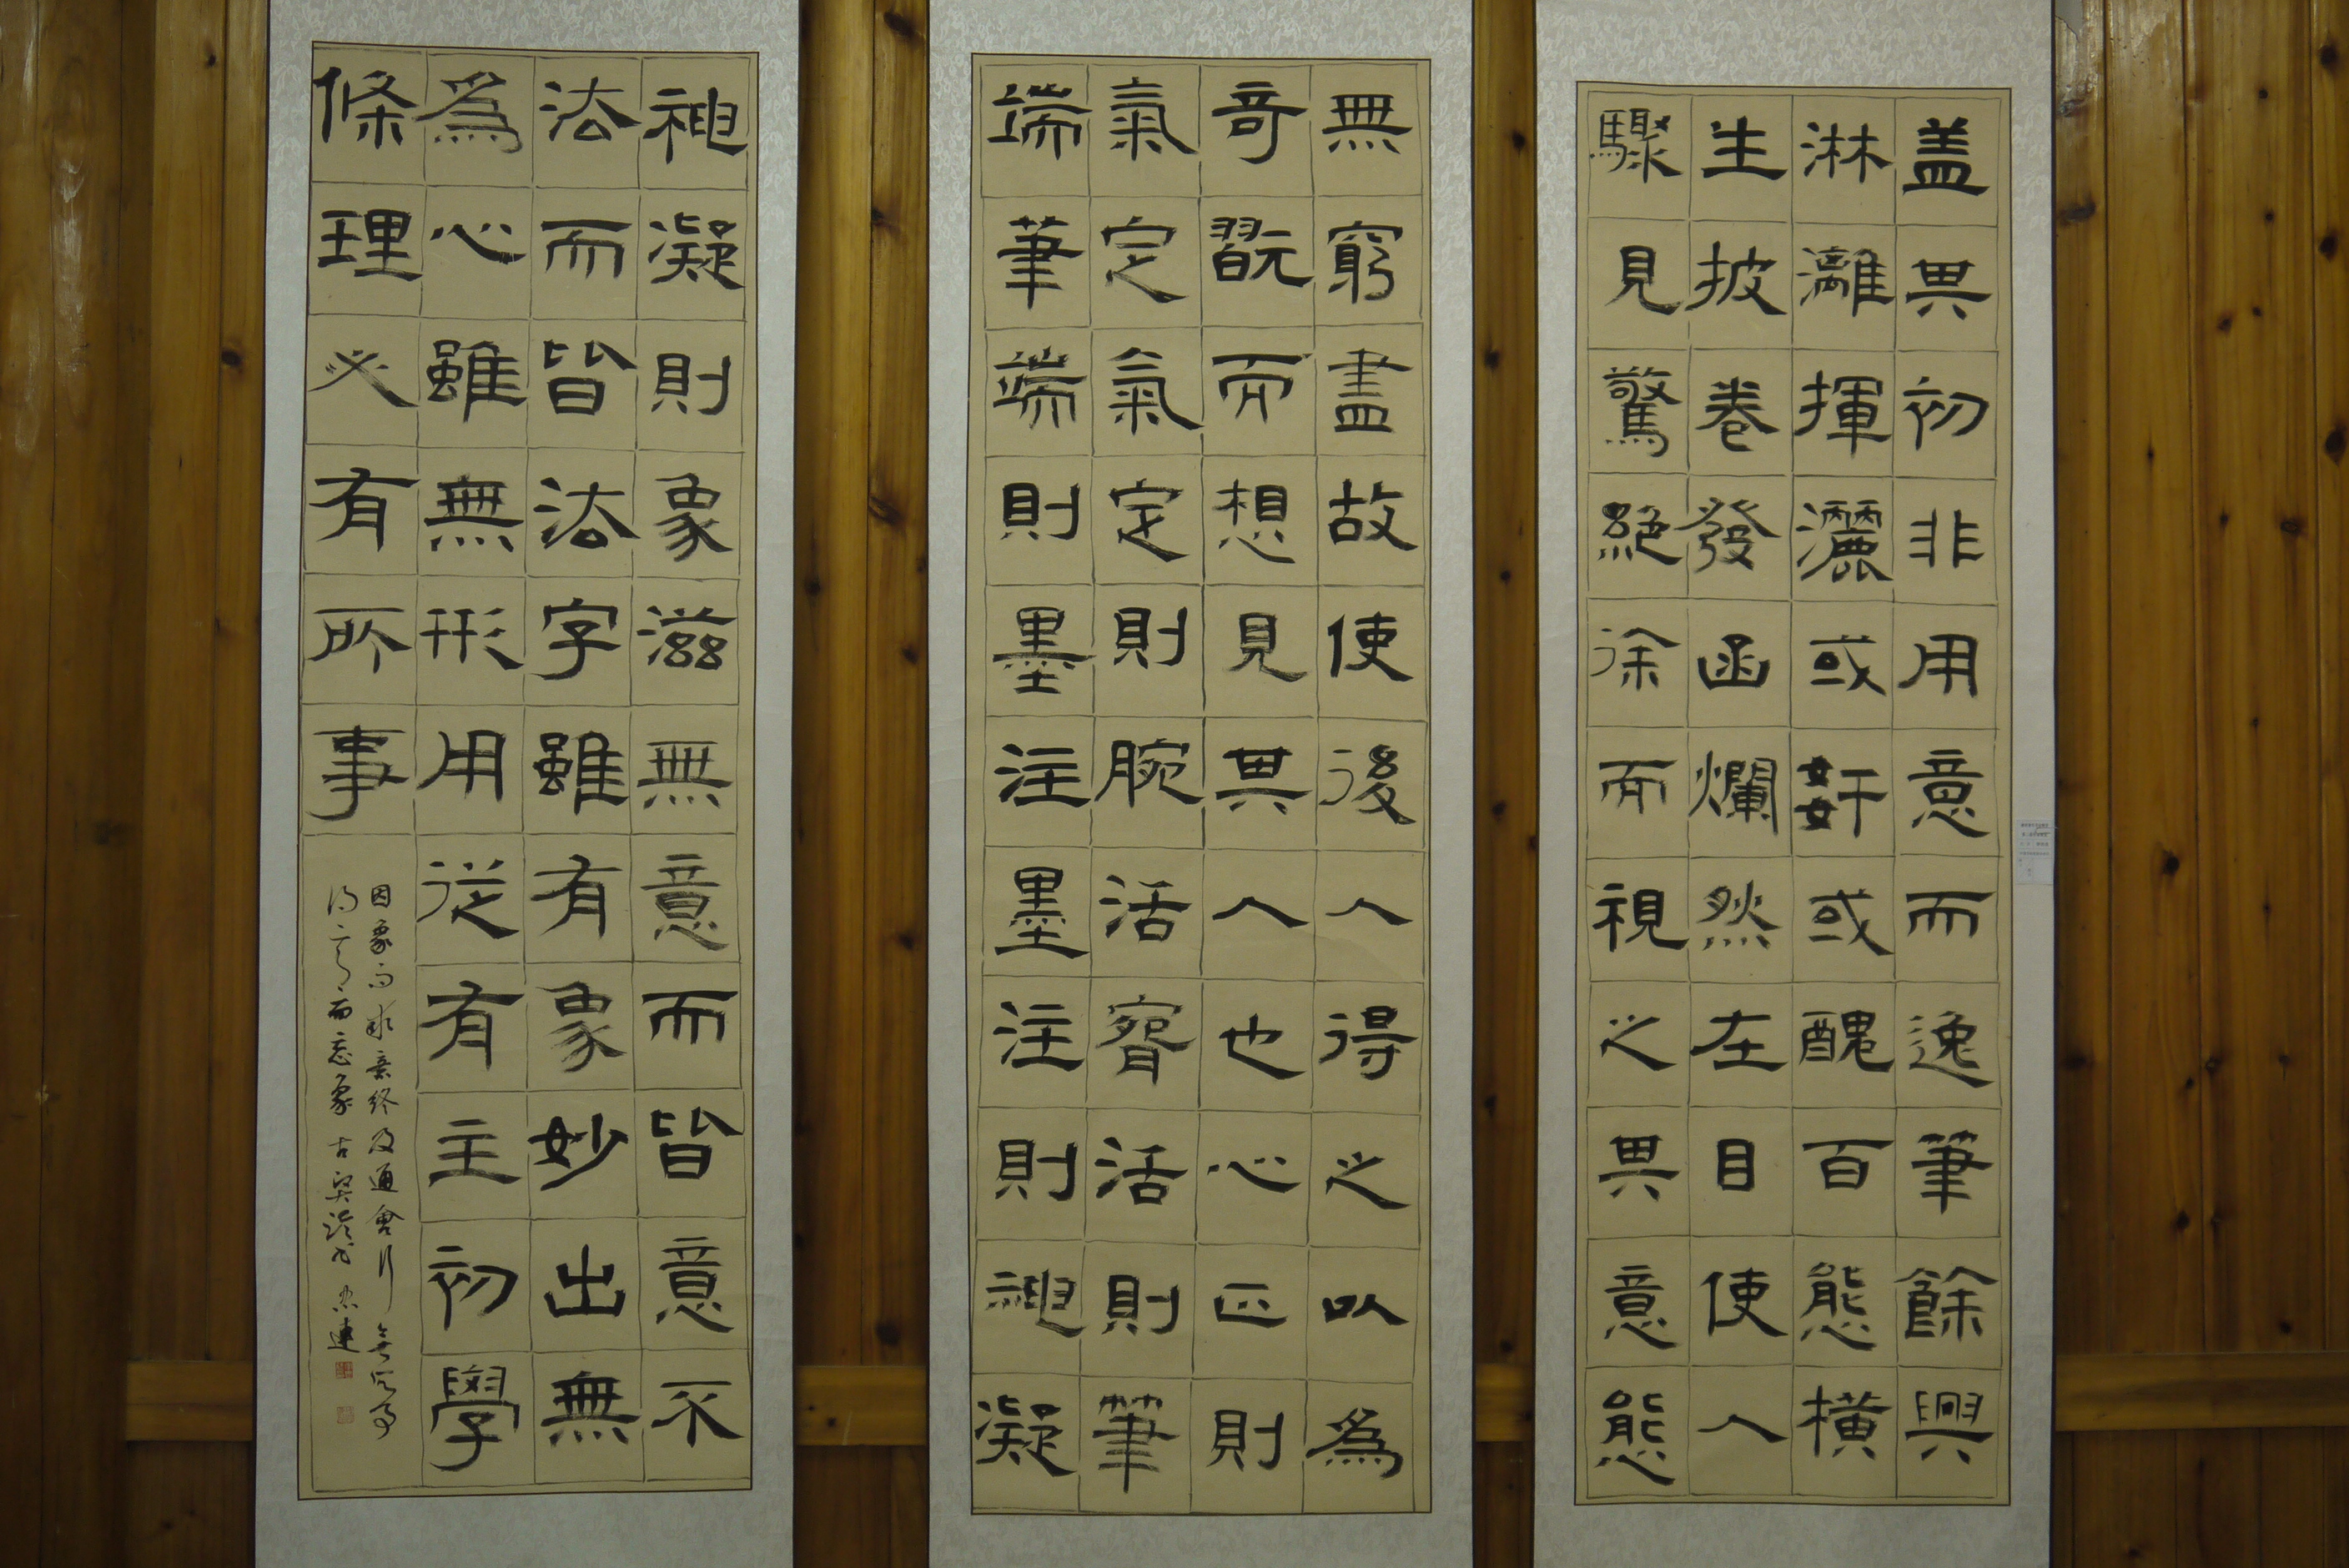 盖異初非用意而逸筆餘興
淋灕揮灑或姸或醜百態橫
生披卷發函爛然在目使人
驟見驚絕徐而視之異意態
無窮盡故使後人得之以為
奇翫而想見異人也心正則
氣定氣定則腕活腕活則筆
端筆端則墨注墨注則神凝
神凝則象滋無意而皆意不
法而皆法字雖有象妙出無
為心雖無形用從有主初學
條理必有所事
因象而求意終及通會行
得意而忘象古